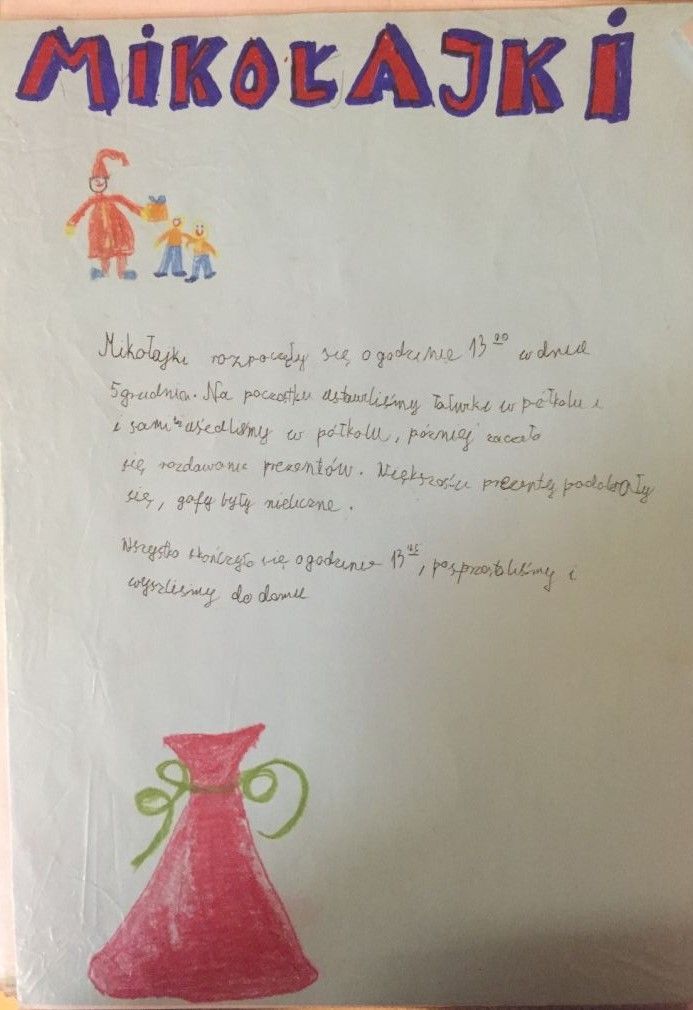 MIKOŁAJKI
Mikołajki rozpoczęły się o godzinie 13 00 w dniu
5 grudnia. Na początku ustawiliśmy ławki w półkolu i
i sami usiedliśmy w półkolu, później zaczęło
się rozdawanie prezentów. Większości prezenty podobały
się, gafy były nieliczne.
Wszystko skończyło się o godzinie 13 45, posprzątaliśmy i
wyszliśmy do domu